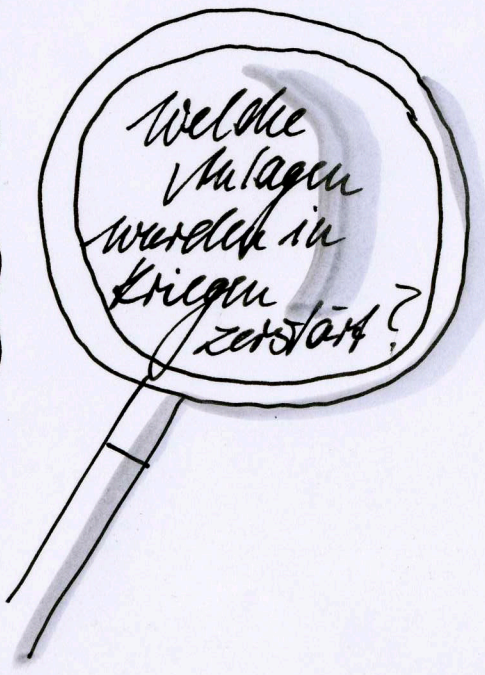 Welche
Anlagen
wurden in
Kriegen
zerstört?